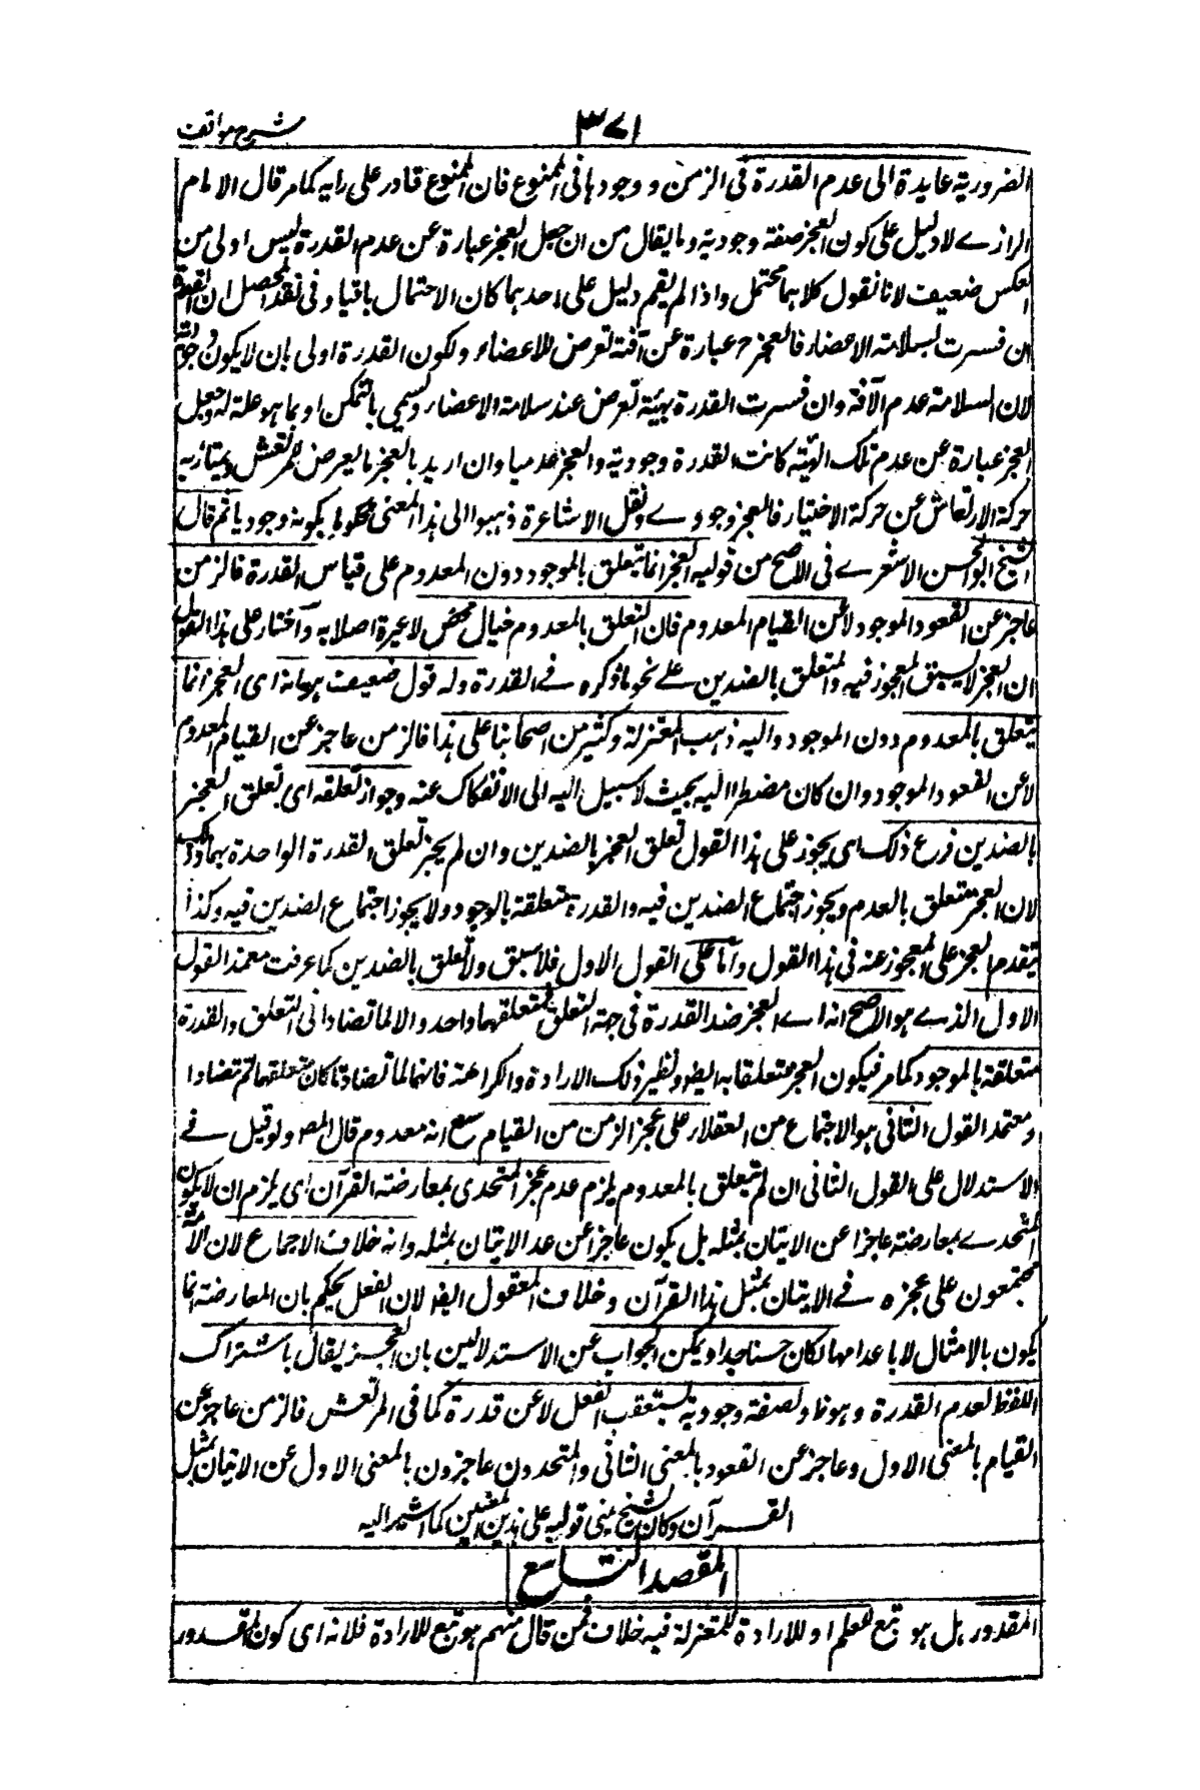 شرح مواقف
٣٧١
الضرورية عايدة الى عدم القدرة فى الزمن ووجودها فى الممنوع فان الممنوع قادر على رايه كما مر قال الامام
الرازے لا دليل على كون العجز صفة وجودية وما يقال من ان جعل العجز عبارة عن عدم القدرة ليس اولى من
العكس ضعيف لانا نقول كلاهما محتمل واذا لم يقم دليل على احدهما كان الاحتمال باقيا وفى نقد المحصل ان القدرة
ان فسرت بسلامة الاعضاء فالعجز ح عبارة عن آفة تعرض للاعضاء ولكون القدرة اولى بان لا يكون وجودية
لان السلامة عدم الآفة وان فسرت القدرة بهيئة تعرض عند سلامة الاعضاء وتسمى بالتمكن او بما هو علة له وجعل
العجز عبارة عن عدم تلك الهيئة كانت القدرة وجودية والعجز عدميا وان اريد بالعجز ما يعرض للمرتعش ويمتاز به
حركة الارتعاش عن حركة الاختيار فالعجز وجودے ولعل الاشاعرة ذهبوا الى هذا المعنى فحكموا بكونه وجوديا ثم قال
الشيخ ابو الحسن الاشعرے فى الاصح من قوليه العجز انما يتعلق بالموجود دون المعدوم على قياس القدرة فالزمن
عاجز عن القعود الموجود لا عن القيام المعدوم فان التعلق بالمعدوم خيال محض لا عبرة اصلا به وآختار على هذا القول
ان العجز لا يسبق المعجوز فيه ولا يتعلق بالضدين علے نحو ما ذكره فے القدرة وله قول ضعيف هو انه اى العجز انما
يتعلق بالمعدوم دون الموجود واليه ذهب المعتزلة وكثير من اصحابنا على هذا فالزمن عاجز عن القيام المعدوم
لا عن القعود الموجود وان كان مضطرا اليه بحيث لا سبيل اليه الى الانفكاك عنه وجواز تعلقه اى تعلق العجز
بالضدين فرع ذلك اى يجوز على هذا القول تعلق العجز بالضدين وان لم يجز تعلق القدرة الواحدة بهما وذلك
لان العجز متعلق بالعدم ويجوز اجتماع الضدين فيه والقدرة متعلقة بالوجود ولا يجوز اجتماع الضدين فيه وكذا
يتقدم العجز على المعجوز عنه فى هذا القول وآما على القول الاول فلا سبق ولا تعلق بالضدين كما عرفت معتمد القول
الاول الذے هو الاصح انه اے العجز ضد القدرة فى جهة التعلق فمتعلقهما واحد والا لما تضادا فى التعلق والقدرة
متعلقة بالموجود كما مر فيكون العجز متعلقا به ايضا ونظير ذلك الارادة والكراهة فانهما لما تضادتا كان متعلقهما ثم تضادا
ومعتمد القول الثانى هو الاجتماع من العقلاء على عجز الزمن من القيام مع انه معدوم قال المص ولو قيل فے
الاستدلال على القول الثانى ان لم يتعلق بالمعدوم يلزم عدم عجز المتحدى بمعارضة القرآن اى يلزم ان لا يكون
المتحدے بمعارضته عاجزا عن الاتيان بمثله بل يكون عاجزا عن عدم الاتيان بمثله وانه خلاف الاجماع لان الامة
مجتمعون على عجزه فے الاتيان بمثل هذا القرآن وخلاف المعقول ايضا لان العقل يحكم بان المعارضة انما
يكون بالامثال لا باعدامها لكان حسنا جدا ويمكن الجواب عن الاستدلالين بان العجز يقال باشتراك
اللفظ لعدم القدرة وهو ظ ولصفة وجودية يستعقب الفعل لا عن قدرة كما فى المرتعش فالزمن عاجز عن
القيام بالمعنى الاول وعاجز عن القعود بالمعنى الثانى والمتحدون عاجزون بالمعنى الاول عن الاتيان بمثل
القرآن وكان الشيخ بنى قوليه على هذين المعنيين كما اشير اليه
المقصد التاسع
المقدور هل هو تبع للعلم او للارادة للمعتزلة فيه خلاف فمن قال منهم هو تبع للارادة فلانه اى كون المقدور